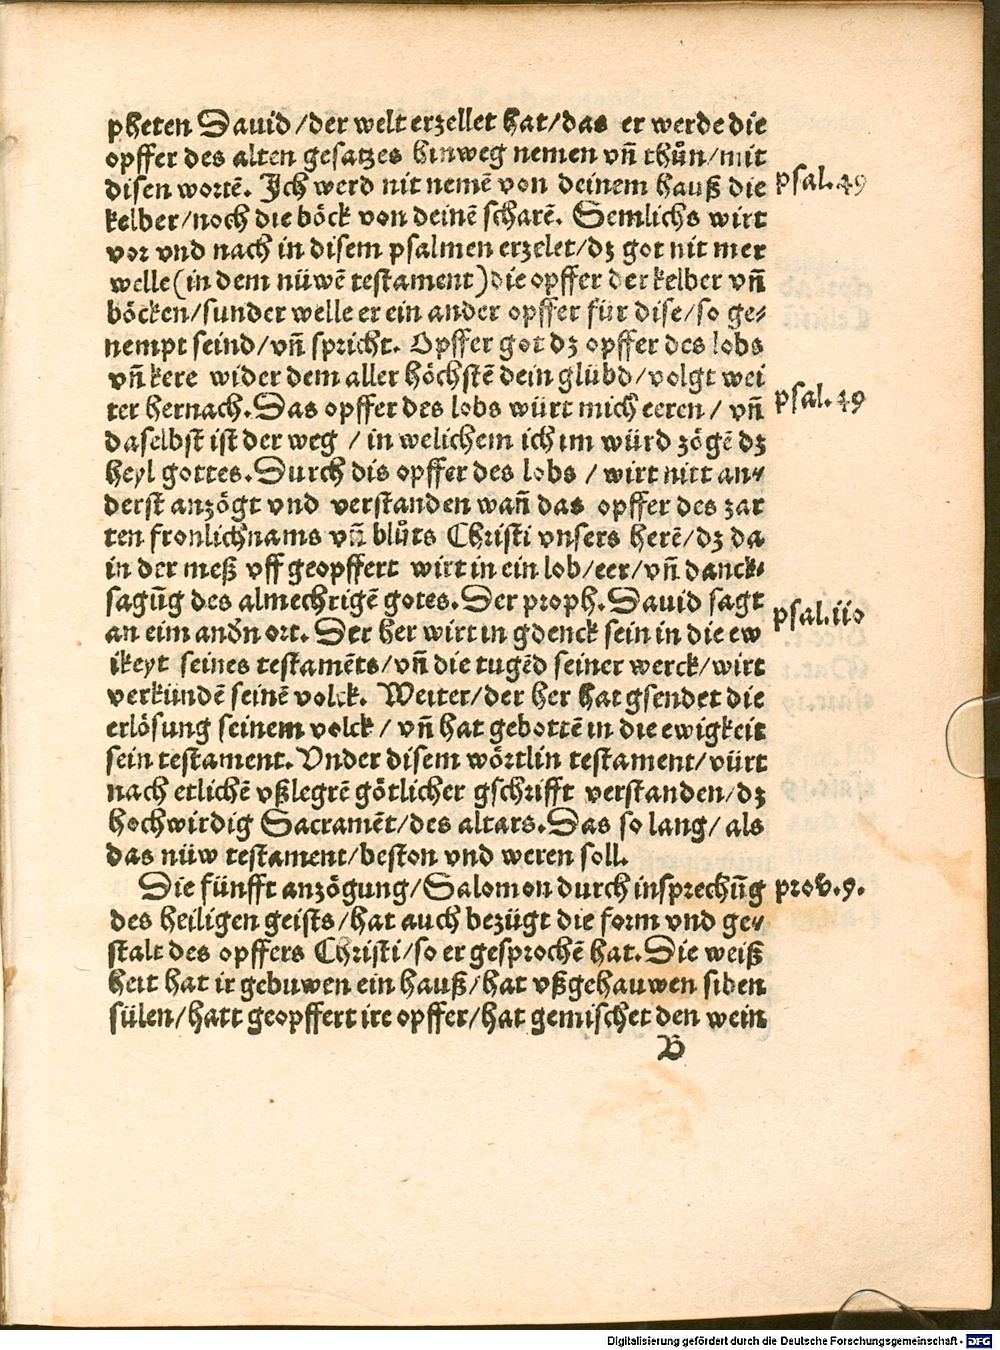 pheten Dauid /der welt erzellet hat/das er werde die
opffer des alten gesatzes hinweg nemen vn̄ thůn/mit
disen wortē. Ich werd nit nemē von deinem hauß die
psal.49
kelber/noch die böck von deinē scharē. Semlichs wirt
vor vnd nach in disem psalmen erzelet/dz got nit mer
welle (in dem nüwē testament) die opffer der kelber vn̄
böcken/sunder welle er ein ander opffer für dise/so ge⸗
nempt seind/vn̄ spricht. Opffer got dz opffer des lobs
vn̄ kere wider dem aller höchstē dein glübd/volgt wei
ter hernach.Das opffer des lobs würt mich eeren / vn̄
psal.49
daselbst ist der weg / in welichem ich im würd zögē dz
heyl gottes.Durch dis opffer des lobs / wirt nitt an⸗
derst anzögt vnd verstanden wan̄ das opffer des zar
ten fronlichnams vn̄ blůts Christi vnsers herē/dz da
in der meß vff geopffert wirt in ein lob/eer/vn̄ danck⸗
sagūg des almechtigē gotes.Der proph.Dauid sagt
psal.110
an eim andn̄ ort. Der her wirt in gdenck sein in die ew
ikeyt seines testamēts/vn̄ die tugēd seiner werck/wirt
verkündē seinē volck. Weiter/der her hat gsendet die
erlösung seinem volck / vn̄ hat gebottē in die ewigkeit
sein testament. Vnder disem wörtlin testament/vürt
nach etlichē vßlegrē götlicher gschrifft verstanden/dz
hochwirdig Sacramēt/des altars.Das so lang/ als
das nüw testament/beston vnd weren soll.
Die fünfft anzögung/Salomon durch insprechūg
prov.9.
des heiligen geists/hat auch bezügt die form vnd ge⸗
stalt des opffers Christi/so er gesprochē hat.Die weiß
heit hat ir gebuwen ein hauß/hat vßgehauwen siben
sülen/hatt geopffert ire opffer/hat gemischet den wein
B
Digitalisierung gefördert durch die Deutsche Forschungsgemeinschaft - DFG